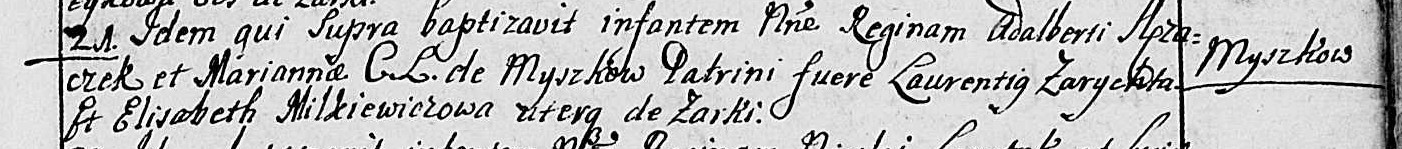 21. Idem qui Supra baptizavit infantem Nne Reginam Adalberti Apra=
czek et Mariannæ C. L. de Myszkow Patrini fuere Laurentig Zarychta
Et Elisabeth Milkiewiczowa uterq de Zarki.
Myszkow